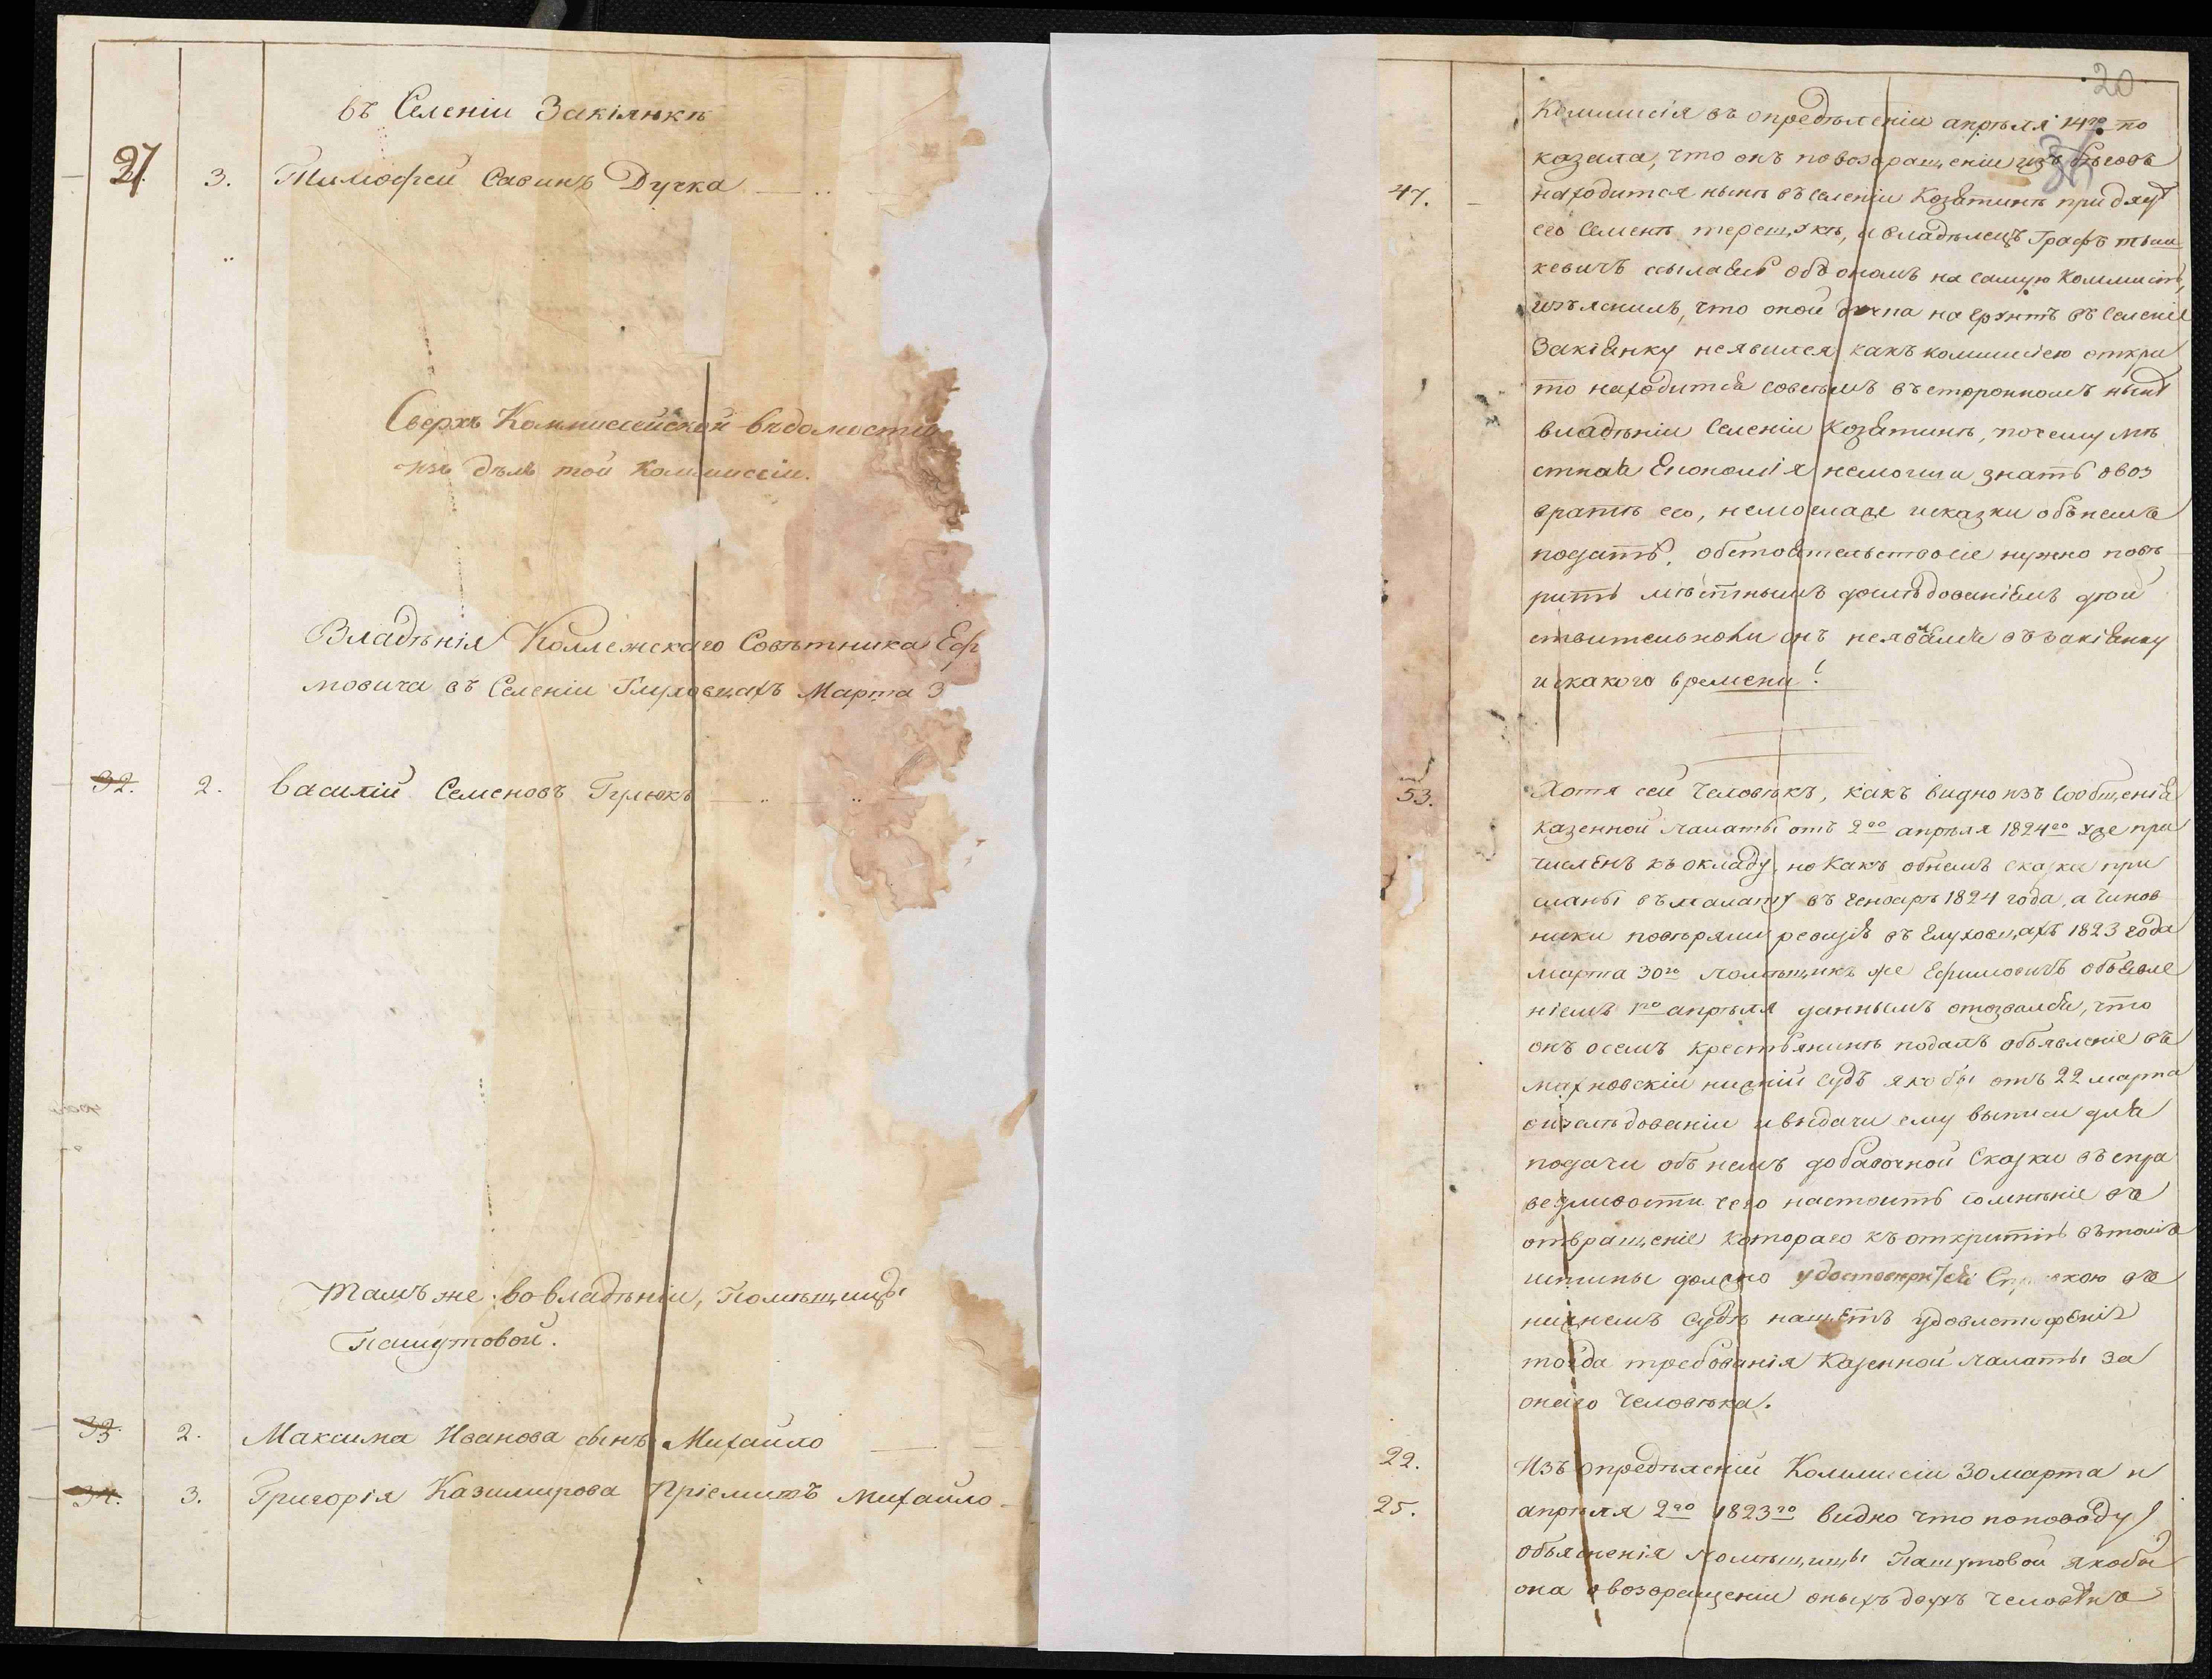 въ Селеніи Закіянкѣ
27. 3. Тимофей Савинъ Дучка
Сверхъ Коммиссейской вѣдомости
изъ дѣлъ той Коммиссіи.
Владѣнія Коллежскаго Совѣтника Еф
мовича въ Селеніи Глуховцахъ Марта 3
32. 2. Василій Семеновъ Гулюкъ
Тамъ же во владѣніи, Помѣщицы
Пашутовой.
33. 2. Максима Иванова сынъ Михайло
34. 3. Григорія Казимирова Пріемышъ Михайло
20
Коммисія въ опредѣленіи апрѣля 14го по
казала, что онъ повозвращеніи изъ бѣговъ
47. находится нынѣ въ селеніи Козятинѣ при дядѣ
его Семенѣ терещукѣ, и владѣлецъ Графъ тыш
кевичъ ссылаясь объ ономъ на самую Коммисію,
изъяснилъ, что оной дучка на грунтъ въ Селеніе
Закіянку неявился какъ комиссіею откры
то находится совсѣмъ въ стороннемъ нынѣ
владѣніи Селеніи Козятинѣ, почему мѣ
стная Економія немогши знать овоз
вратѣ его, немоглаже исказки объ немъ
подать. обстоятельствосіе нужно повѣ
рить мѣстнымъ дослѣдованіемъ дѣй
ствительноли онъ неявился въ Закіянку
и скакого времени!
53. Хотя сей Человѣкъ, какъ видно изъ Сообщенія
казенной палаты отъ 2го апрѣля 1824го уже при
численъ къ окладу, но какъ объ немъ сказки при
сланы въ палату въ Генварѣ 1824 года, а Чинов
ники повѣряли ревизію въ Глуховцахъ 1823 года
марта 30го помѣщикъ же Ефимовичъ объявле
ніемъ 1го апрѣля даннымъ отозвался, что
онъ осемъ крестьянинѣ подалъ объявленіе въ
махновскій нижній Судъ якобы отъ 22 марта
оизслѣдованіи ивыдачи ему выписи для
подачи объ немъ добавочной Сказки въ спра
ведливости чего настоитъ сомнѣніе въ
отвращеніе котораго къ открытію въ томъ
истины должно удостовѣриться Справкою въ
нижнемъ Судѣ насчетъ удовлетворенія
тогда требованія Казенной палаты за
онаго Человѣка.
22. Изъ опредѣленій Коммисіи 30 марта и
25. апрѣля 2го 1823го видно что поповоду
объясненія помѣщицы Пашутовой якобы
она овозвращеніи оныхъ двухъ человѣкъ